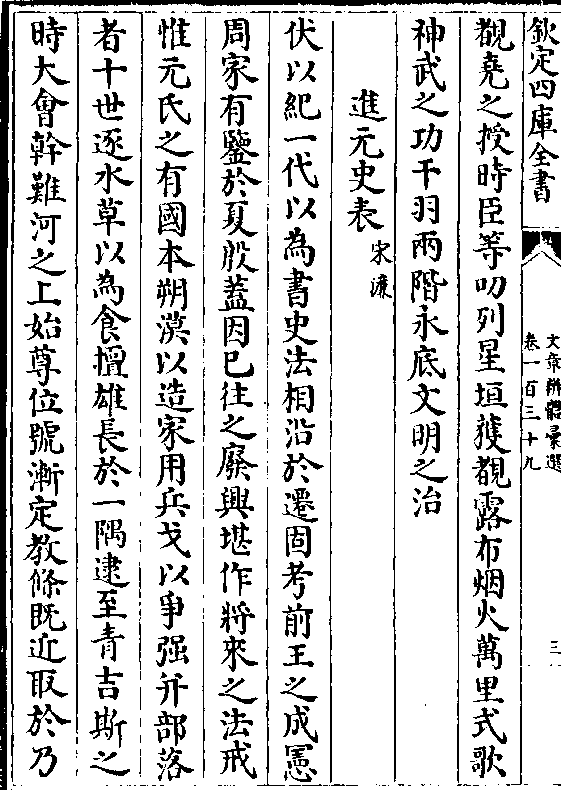 欽定四庫全書
文章辨體彙選
卷一百三十九
三
覩堯之授時臣等叨列星垣獲覩露布烟火萬里式歌
神武之功干羽兩階永底文明之治
進元史表
宋濂
伏以紀一代以為書史法相沿於遷固考前王之成憲
周家有鑒於夏殷蓋因已往之廢興堪作將來之法戒
惟元氏之有國本朔漠以造家用兵戈以爭强并部落
者十世逐水草以為食擅雄長於一隅逮至青吉斯之
時大會斡難河之上始尊位號漸定教條既近取於乃